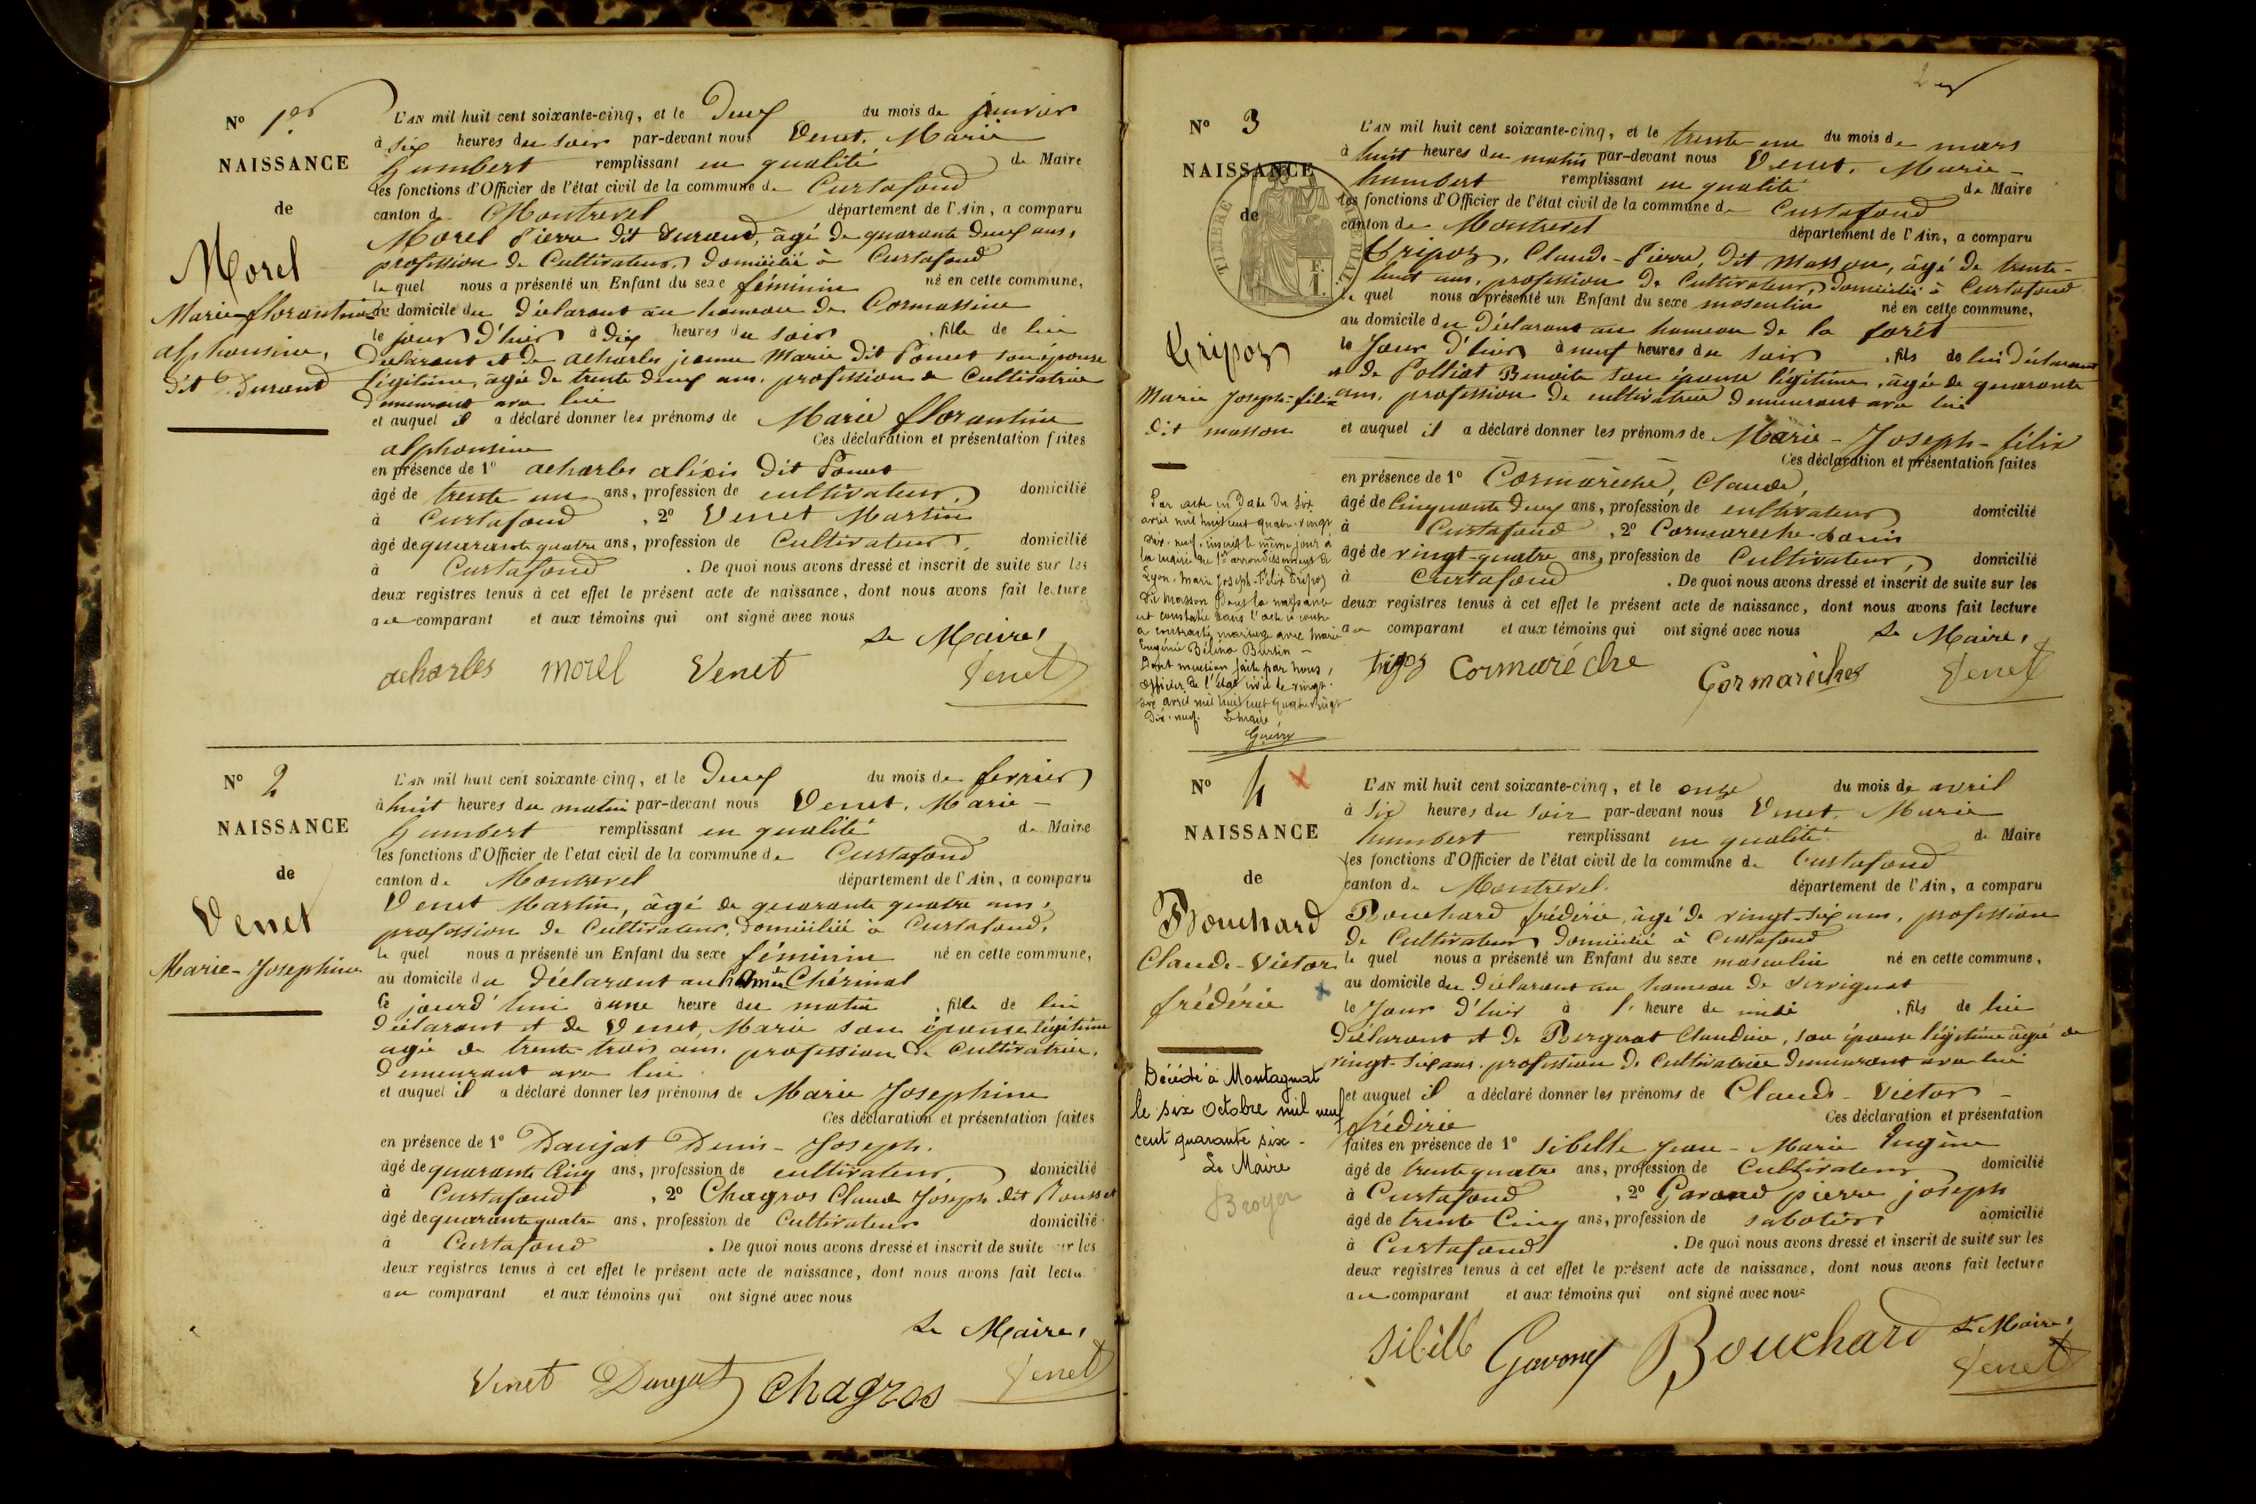 N° 1er
NAISSANCE
de
Morel
Marie florantine
alphonsine,
dit Durand
L'AN mil huit cent soixante-cinq, et le Deux du mois de janvier
à six heures du soir par-devant nous Venet, Marie
humbert remplissant en qualité de Maire
les fonctions d'Officier de l'état civil de la commune de Curtafond
canton de Montrevel département de l'Ain, a comparu
Morel Pierre dit Durand, âgé de quarante deux ans,
profession de Cultivateur, domicilié à Curtafond
le quel nous a présenté un Enfant du sexe féminin né en cette commune,
au domicile du Déclarant au hameau de Cormassine
le jour d'hier à dix heures du soir, fille de lui
Déclarant et de acharles jeanne Marie dit Pomet son épouse
légitime, agée de trente deux ans, profession de Cultivatrice
demeurant avec lui
et auquel il a déclaré donner les prénoms de Marie florantine
alphonsine Ces déclaration et présentation faites
en présence de 1° acharles aléxis dit Pomet
âgé de trente un ans, profession de cultivateur, domicilié
à Curtafond, 2° Venet Martin
âgé de quarante quatre ans, profession de Cultivateur, domicilié
à Curtafond. De quoi nous avons dressé et inscrit de suite sur les
deux registres tenus à cet effet le présent acte de naissance, dont nous avons fait lecture
au comparant et aux témoins qui ont signé avec nous
Le Maire,
acharles morel Venet Venet
N° 2
NAISSANCE
de
Venet
Marie-Josephine
L'AN mil huit cent soixante cinq, et le Deux du mois de fevrier
à huit heures du matin par-devant nous Venet, Marie-
humbert remplissant en qualité de Maire
les fonctions d'Officier de l'etat civil de la commune de Curtafond
canton de Montrevel département de l'Ain, a comparu
Venet Martin, âgé de quarante quatre ans,
profession de Cultivateur, domicilié à Curtafond,
le quel nous a présenté un Enfant du sexe féminin né en cette commune,
au domicile du Déclarant au Chérinal
Ce jourd'hui à une heure du matin, fille de lui
Déclarant et de Venet, Marie son épouse légitime
agée de trente-trois ans, profession de cultivatrice,
demeurant avec lui
et auquel il a déclaré donner les prénoms de Marie Josephine
Ces déclaration et présentation faites
en présence de 1° Daujat Denis-Joseph.
âgé de quarante Cinq ans, profession de cultivateur, domicilié
à Curtafond, 2° Chagros Claude Joseph dit Rousset
âgé de quarante quatre ans, profession de Cultivateur domicilié
à Curtafond. De quoi nous avons dressé et inscrit de suite sur les
deux registres tenus à cet effet le présent acte de naissance, dont nous avons fait lectu
au comparant et aux témoins qui ont signé avec nous
Le Maire,
Venet Daujat Chagros Venet
2
N° 3
NAISSANCE
de
TIMBRE IMPÉRIAL
Tripoz
Marie Joseph-félix
dit masson
L'AN mil huit cent soixante-cinq, et le trente un du mois de mars
à huit heures du matin par-devant nous Venet, Marie-
humbert remplissant en qualité de Maire
les fonctions d'Officier de l'état civil de la commune de Curtafond
canton de Montrevel département de l'Ain, a comparu
Tripoz, Claude-Pierre, dit Masson, âgé de trente-
huit ans, profession de Cultivateur, domicilié à Curtafond
le quel nous a présenté un Enfant du sexe masculin né en cette commune,
au domicile du Déclarant au hameau de la forêt
le Jour d'hier à neuf heures du soir, fils de lui Déclarant
et de Polliat Benoite son épouse légitime, âgée de quarante
ans, profession de cultivatrice demeurant avec lui
et auquel il a déclaré donner les prénoms de Marie-Joseph-félix
Ces déclaration et présentation faites
en présence de 1° Cormarèche, Claude,
âgé de Cinquante Deux ans, profession de cultivateur domicilié
à Curtafond, 2° Cormareche Louis
âgé de vingt-quatre ans, profession de Cultivateur, domicilié
à Curtafond. De quoi nous avons dressé et inscrit de suite sur les
deux registres tenus à cet effet le présent acte de naissance, dont nous avons fait lecture
au comparant et aux témoins qui ont signé avec nous Le Maire,
tripoz Cormaréche Cormaréches Venet
Par acte en date du six
avril mil huit cent quatre-vingt
dix-neuf, inscrit le même jour à
la mairie du 1er arrondissement de
Lyon, Marie Joseph-Félix Tripoz
dit Masson dont la naissance
est constatée dans l'acte ci contre
a contracté mariage avec Marie
Eugénie Burtin -
Dont mention faite par nous,
officier de l'état civil le vingt-
six avril mil huit cent quatre vingt
dix-neuf. Le Maire
Guerry
N° 4
NAISSANCE
de
Bouchard
Claude-Victor
frédéric
L'AN mil huit cent soixante-cinq, et le onze du mois de avril
à six heures du soir par-devant nous Venet, Marie
humbert remplissant en qualité de Maire
les fonctions d'Officier de l'état civil de la commune de Curtafond
canton de Montrevel. département de l'Ain, a comparu
Bouchard frédéric, âgé de vingt-six ans, profession
de Cultivateur domicilié à Curtafond
le quel nous a présenté un Enfant du sexe masculin né en cette commune,
au domicile du Déclarant au hameau de Servignat
le Jour d'hier à l' heure de midi, fils de lui
Déclarant et de Bergerat Claudine, son épouse légitime âgée de
vingt-six ans, profession de Cultivatrice demeurant avec lui
et auquel il a déclaré donner les prénoms de Claude-Victor-
frédéric Ces déclaration et présentation
faites en présence de 1° Sibelle Jean-Marie Eugène
âgé de trente quatre ans, profession de Cultivateur domicilié
à Curtafond, 2° Gavand pierre joseph
âgé de trente Cinq ans, profession de sabotier domicilié
à Curtafond. De quoi nous avons dressé et inscrit de suite sur les
deux registres tenus à cet effet le présent acte de naissance, dont nous avons fait lecture
au comparant et aux témoins qui ont signé avec nous
Le Maire,
Sibille Gavand Bouchard Venet
Décédé à Montagnat
le six Octobre mil neuf
cent quarante six -
Le Maire
Broyer